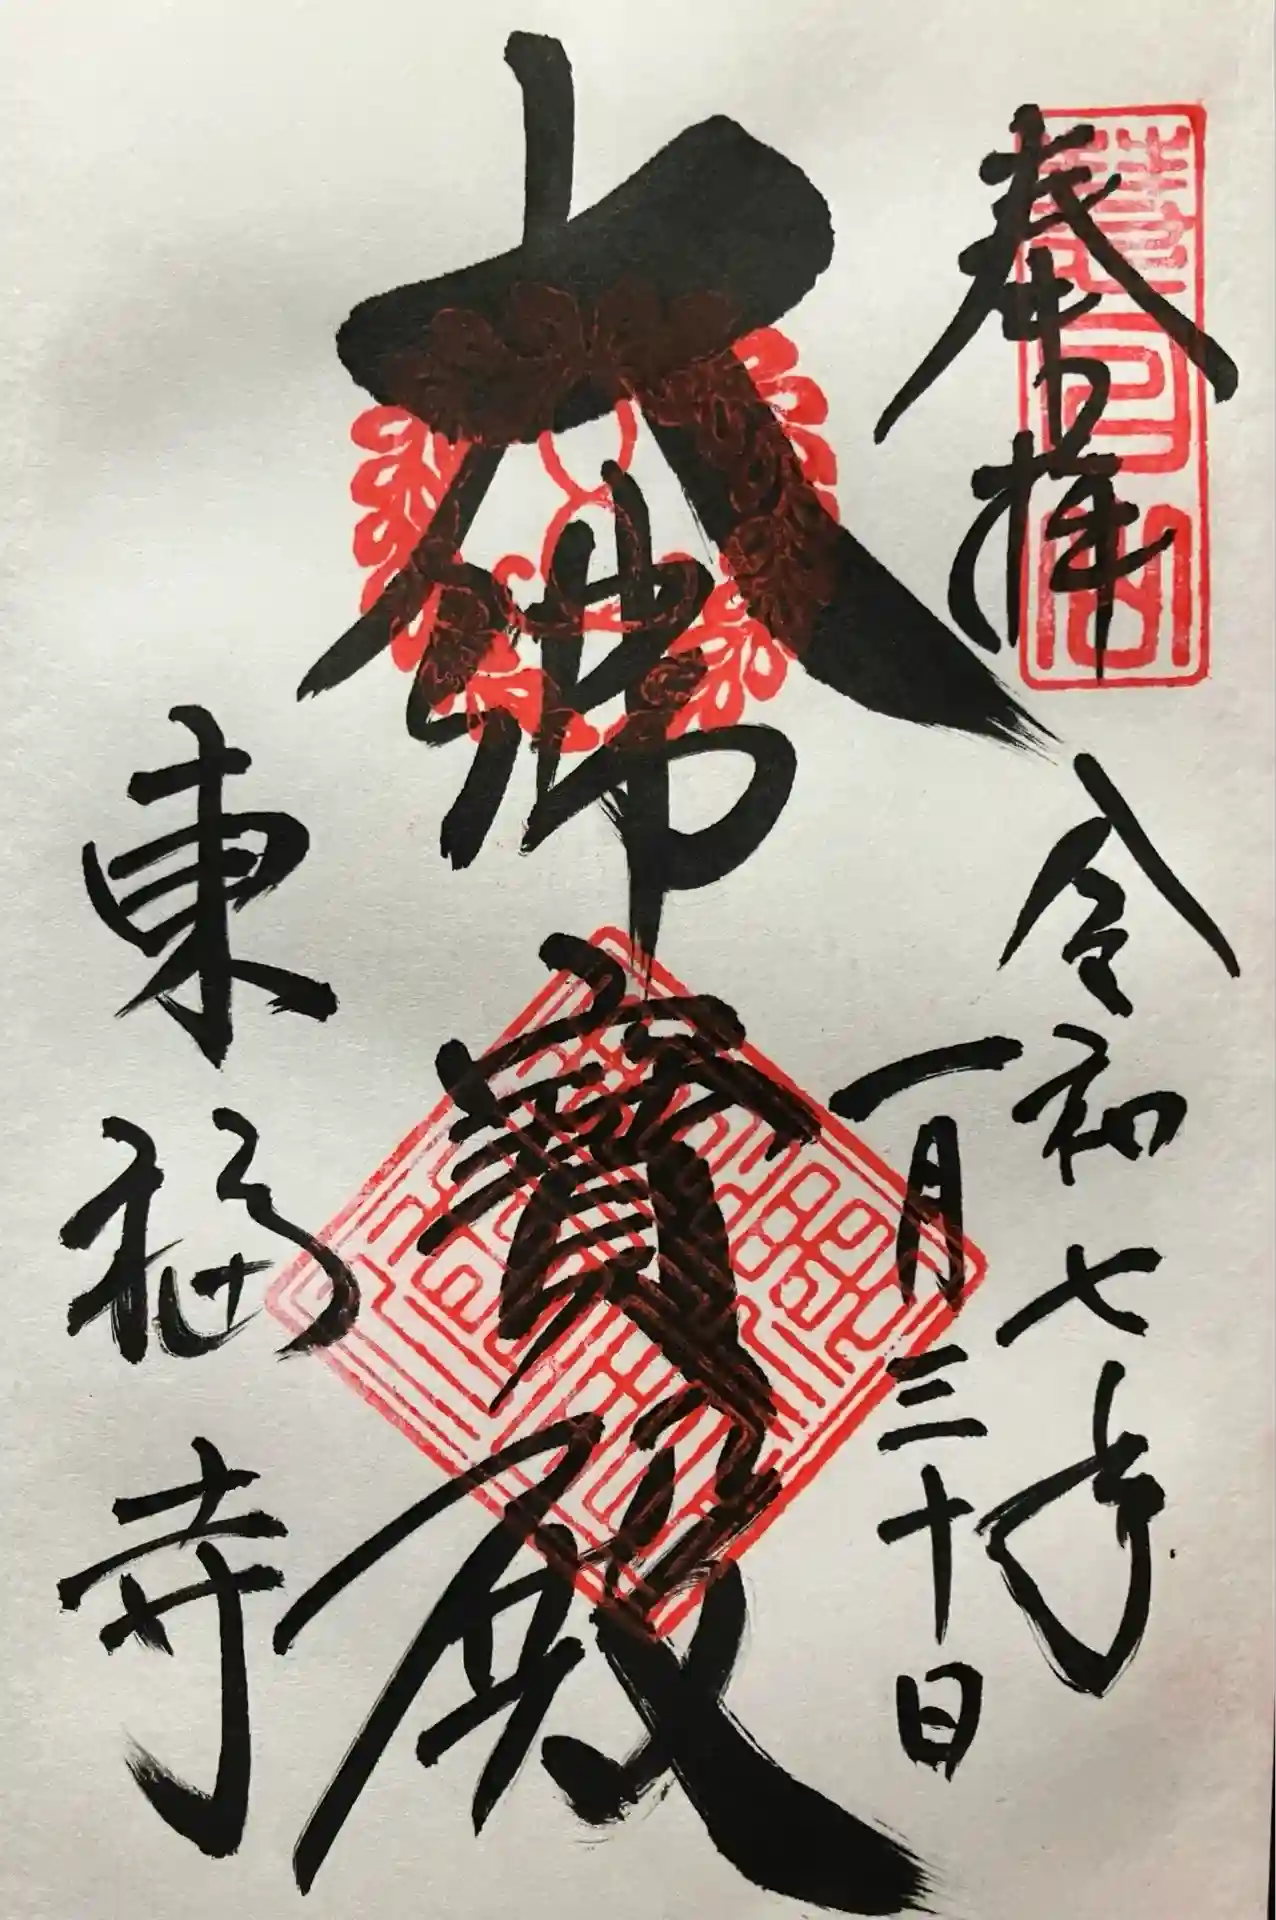 奉拝
令和七年
一月三十日
大佛寳殿
東福寺